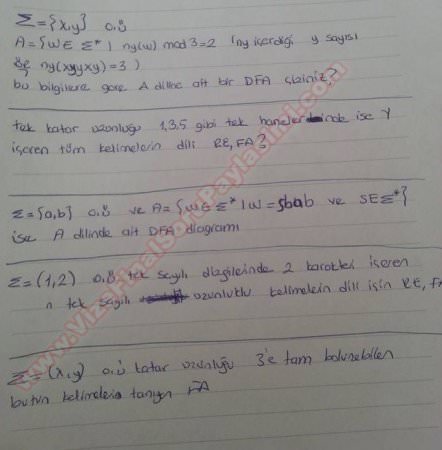 Σ={x,y} o.ü
A={W∈ Σ* | ny(w) mod 3=2 (ny içerdiği y sayısı
ör ny(xyyxy)=3 )
bu bilgilere göre A diline ait bir DFA çiziniz?
tek katar uzunluğu 1,3,5 gibi tek hanelerinde ise Y
içeren tüm kelimelerin dili RE, FA?
Σ={a,b} o.ü ve A={W∈ Σ* | W=sbab ve S∈Σ*}
ise A dilinde ait DFA diagramı
Σ=(1,2) o.ü tek sayılı dizgilerinde 2 karakteri içeren
n tek sayılı uzunluklu kelimelerin dili için RE, FA
Σ=(x,y) o.ü katar uzunluğu 3'e tam bölünebilen
bütün kelimeleri tanıyan FA
www.VizeFinalSoruPaylasimi.com